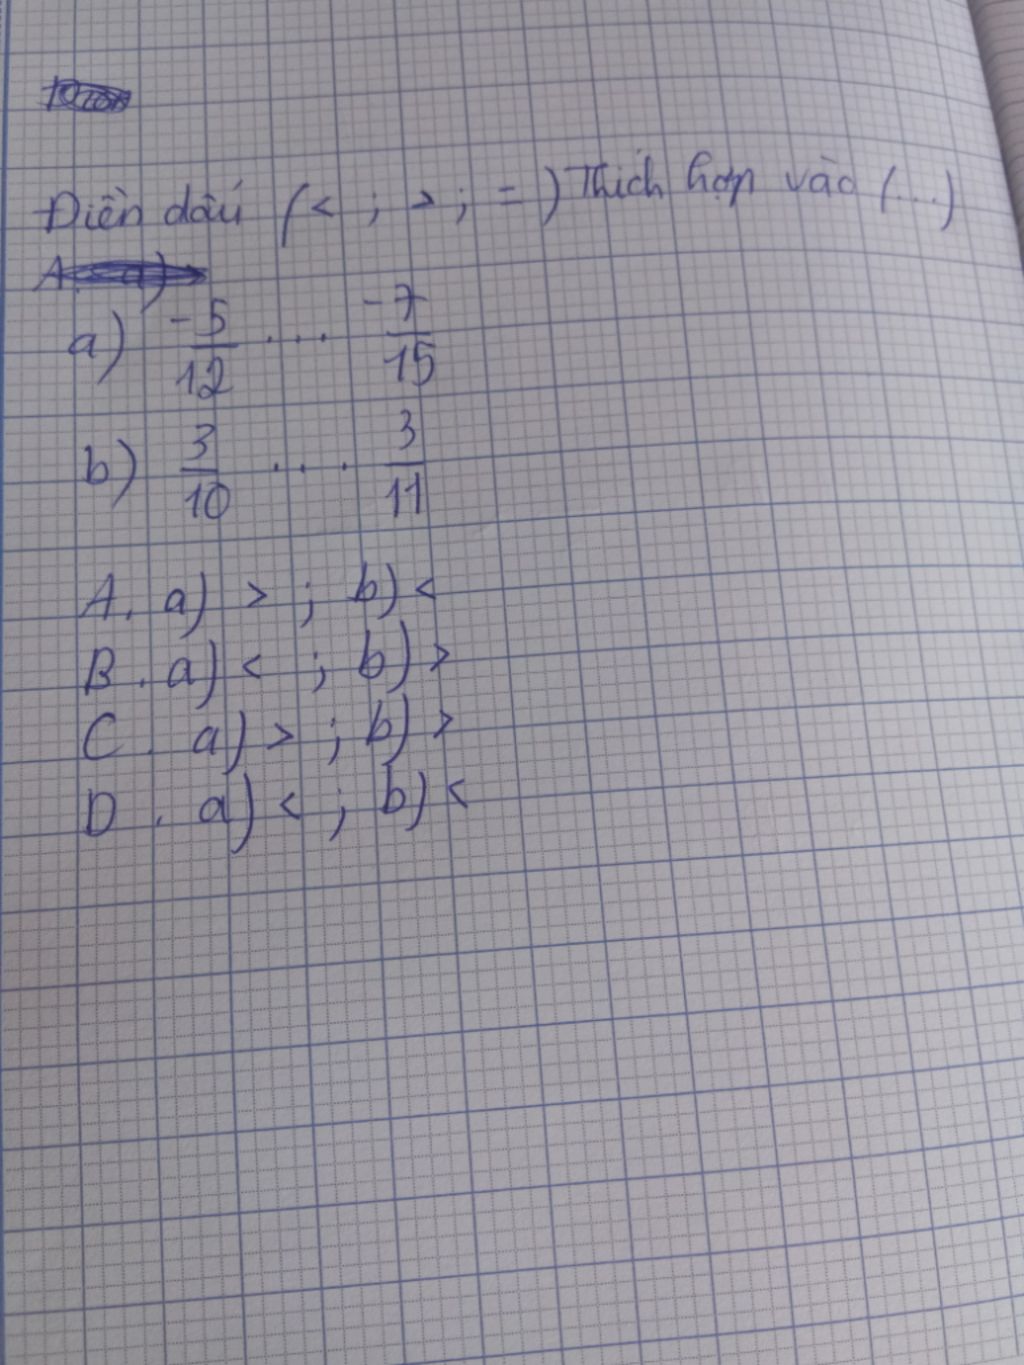 Điền dấu (< ; > ; = ) Thích hợp vào (...)
a) -5/12 ... -7/15
b) 3/10 ... 3/11
A. a) > ; b) <
B. a) < ; b) >
C. a) > ; b) >
D. a) < ; b) <